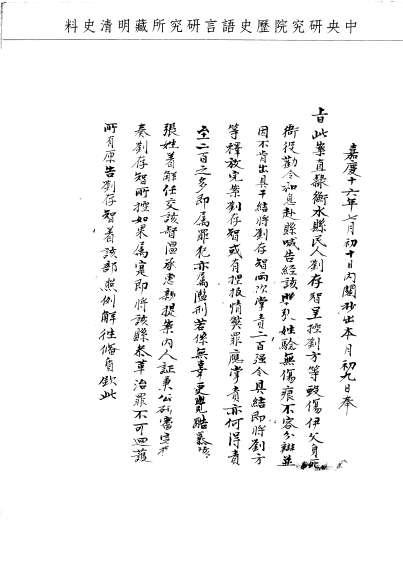 中央研究院歷史語言研究所藏明清史料
嘉慶十六年七月初十日內閣抄出本月初九日奉
旨此案直隸衡水縣民人劉存智呈控劉方等毆傷伊父身死
衙役勒令和息赴縣喊告經該縣孔姓驗無傷痕不容分辨並
因不肯出具干結將劉存智兩次掌責二百強令具結即將劉方
等釋放完案劉存智或有捏報情獘罪應掌責亦何得責
至二百之多即屬罪犯亦屬濫刑若係無辜更覺酷暴該
張姓著解任交該督溫承惠親提案內人証秉公研審定擬
奏劉存智所控如果屬實即將該縣叅革治罪不可迴護
所有原告劉存智著該部照例解往備質欽此